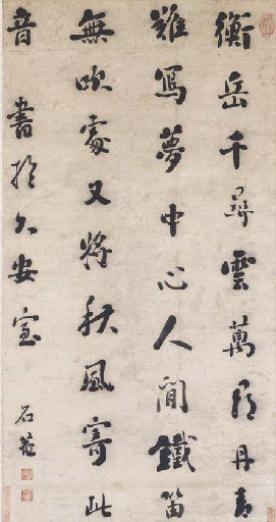 衡岳千尋雲萬頃丹青
難寫夢中心人間鐵笛
無吹處又將秋風寄此
音 書於久安室 石菴